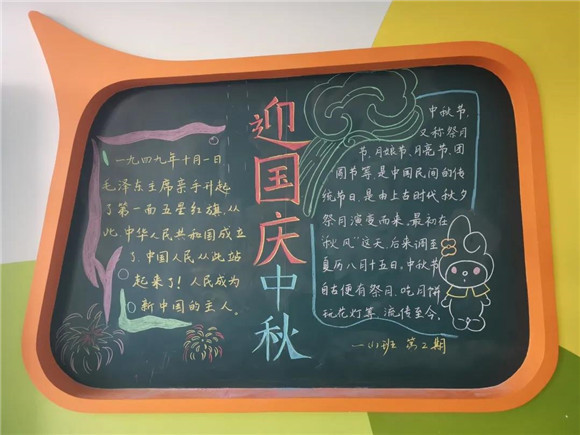 迎国庆中秋
一九四九年十月一日
毛泽东主席亲手升起
了第一面五星红旗,从
此,中华人民共和国成立
了,中国人民从此站
起来了!人民成为
新中国的主人。
中秋节,
又称祭月
节、月娘节、月亮节、团
圆节等,是中国民间的传
统节日,是由上古时代秋夕
祭月演变而来,最初在
“秋风”这天,后来调至
夏历八月十五日。中秋节
自古便有祭月、吃月饼
玩花灯等,流传至今。
一(1)班 第2期